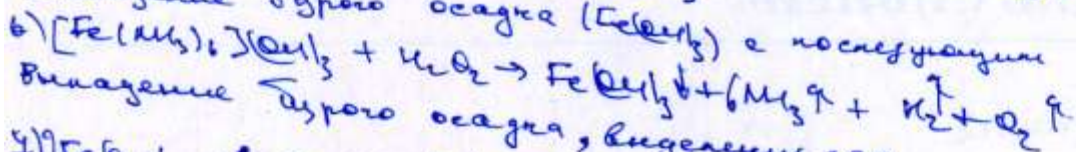 бурого осадка (Fe(OH)₃) с последующим
в) [Fe(NH₃)₆](OH)₃ + H₂O₂ → Fe(OH)₃↓ + 6NH₃↑ + H₂↑ + O₂↑
Выпадение бурого осадка, выделение